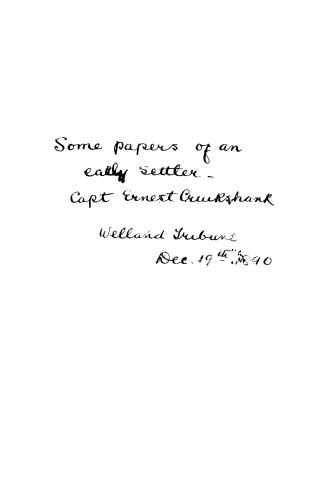 Some papers of an
early settler -
Capt Ernest Cruikshank
Welland Tribune
Dec. 19th 1890